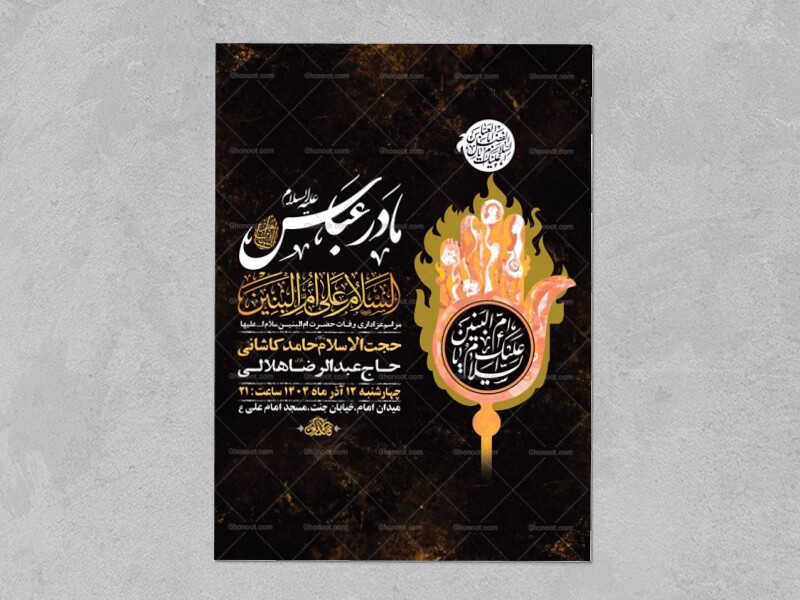 علیه السلام
مادر عباس
السلام علی ام البنین
مراسم عزاداری وفات حضرت ام البنین سلام الله علیها
حجت الاسلام حامد کاشانی
حاج عبدالرضا هلالی
چهارشنبه ۱۲ آذر ماه ۱۴۰۴ ساعت: ۲۱
میدان امام، خیابان جنت، مسجد امام علی ع
سلام علیک یا ام البنین
Ghonoot.com